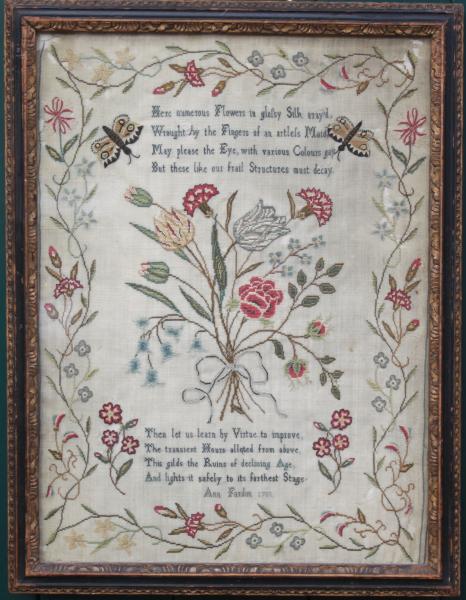 Here numerous Flowers in glossy Silk aray'd,
Wrought by the Fingers of an artless Maid
May please the Eye, with various Colours gay
But these like our frail Structures must decay.
Then let us learn by Virtue to improve,
The transient Hours alloted from above,
This gilds the Ruins of declining Age,
And lights it safely to its farthest Stage.
Ann